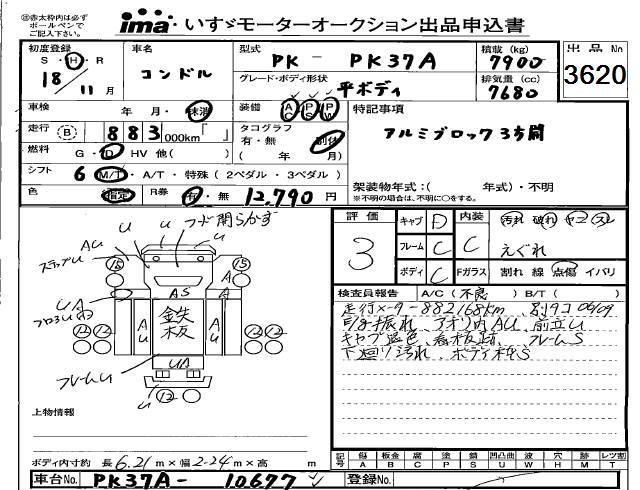 ㊟赤太枠内は必ず
ボールペンで
ご記入下さい。
ima・いすゞモーターオークション出品申込書
初度登録 S・H・R 18年 11月
車名 コンドル
型式 PK - PK37A
積載(kg) 7900
出品No 3620
グレード・ボディ形状 平ボディ
排気量(cc) 7680
車検 年 月・抹消
装備 AC PS PW
特記事項
アルミブロック3方開
走行 B 883,000km「 」
タコグラフ 有・無 別体
( 年 月)
燃料 G・D・HV 他( )
シフト 6 M/T・A/T・特殊(2ペダル・3ペダル)
架装物年式:( 年式)・不明
※不明の場合は、不明に○をする。
色 指定
R券 有・無 12,790円
評価 3
キャブ D
内装 C 汚れ 破れ ヤニ スレ
フレーム C
えぐれ
ボディ C
Fガラス 割れ 線 点傷 イバリ
フード開らかず
ステップU AU U U U
15 15
UA AS A A
AU 鉄板 AU
12 12 12 12
UA
フレームU
U 12
検査員報告 A/C(不良) B/T( )
走行メーター882168km、
アオリ内AU、前立U
キャブ退色、看板跡、フレームS
下廻り汚れ、ボディ枠S
上物情報
ボディ内寸約 長 6.21m×幅 2.24m×高 m
記号 傷A 板金B 腐C 塗P 錆S 凹凸曲U 波W 穴H 跡M レツ割T
車台No. PK37A-10677
登録No.